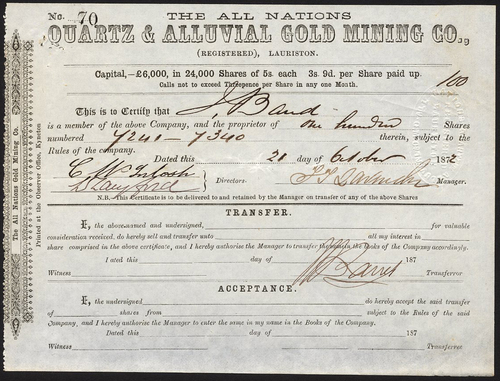 No. 70
THE ALL NATIONS
QUARTZ & ALLUVIAL GOLD MINING CO.,
(REGISTERED), LAURISTON.
Capital,—£6,000, in 24,000 Shares of 5s. each 3s. 9d. per Share paid up.
Calls not to exceed Threepence per Share in any one Month.
100
This is to Certify that J. Band
is a member of the above Company, and the proprietor of one hundred Shares
numbered 7241 - 7340 therein, subject to the
Rules of the company.
Dated this 21 day of October 1872
Directors. Manager.
N.B.—This Certificate is to be delivered to and retained by the Manager on transfer of any of the above Shares
TRANSFER.
I, the above-named and undersigned, for valuable
consideration received, do hereby sell and transfer unto all my interest in
share comprised in the above certificate, and I hereby authorise the Manager to transfer in the Books of the Company accordingly.
Dated this day of 187
Witness Transferror
ACCEPTANCE.
I, the undersigned do hereby accept the said transfer
of shares from subject to the Rules of the said
Company, and I hereby authorise the Manager to enter the same in my name in the Books of the Company.
Dated this day of 187
Witness Transferror
The All Nations Gold Mining Co.
Printed at the Observer Office, Kyneton